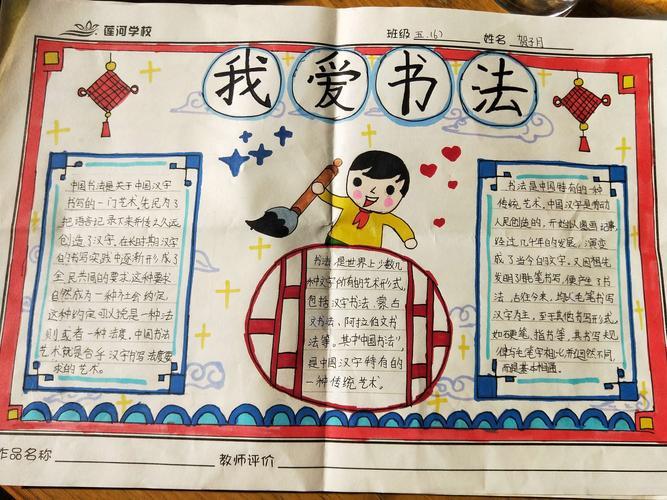 莲河学校
班级 五.(6) 姓名 贺子月
我爱书法
中国书法是关于中国汉字
书写的一门艺术,先民为了
把语言记录下来并传之久远
创造了汉字,在长时期汉字
的书写实践中逐渐形成了
全民共同的要求,这种要求
自然成为一种社会约定,
这种约定可以说是一种法
则或者一种法度,中国书法
艺术就是合乎汉字书写法度要
求的艺术。
书法是世界上少数几
种文字所有的艺术形式,
包括汉字书法、蒙古
文书法、阿拉伯文书
法等。其中"中国书法",
是中国汉字特有的
一种传统艺术。
书法是中国特有的一种
传统艺术,中国汉字是劳动
人民创造的,开始以图画记事,
经过几千年的发展,演变
成了当今的文字,又因祖先
发明了用毛笔书写,便产生了书
法,古往今来,均以毛笔书写
汉字为主,至于其他书写形式,
如硬笔、指书等,其书写规
律与毛笔字相比并迥然不同,
而是基本相通。
作品名称
教师评价